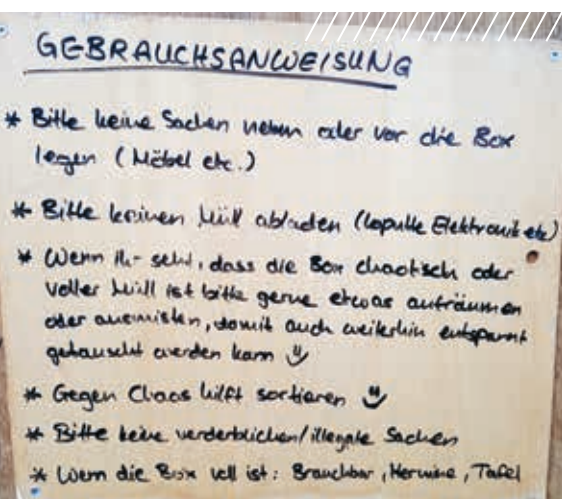 GEBRAUCHSANWEISUNG
* Bitte keine Sachen neben oder vor die Box
legen (Möbel etc.)
* Bitte keinen Müll abladen (kaputte Elektronik etc)
* Wenn ihr seht, dass die Box chaotisch oder
voller Müll ist bitte gerne etwas aufräumen
oder ausmisten, damit auch weiterhin entspannt
getauscht werden kann
* Gegen Chaos hilft sortieren
* Bitte keine verderblichen/illegale Sachen
* Wenn die Box voll ist: Brauchbar, Hermine, Tafel